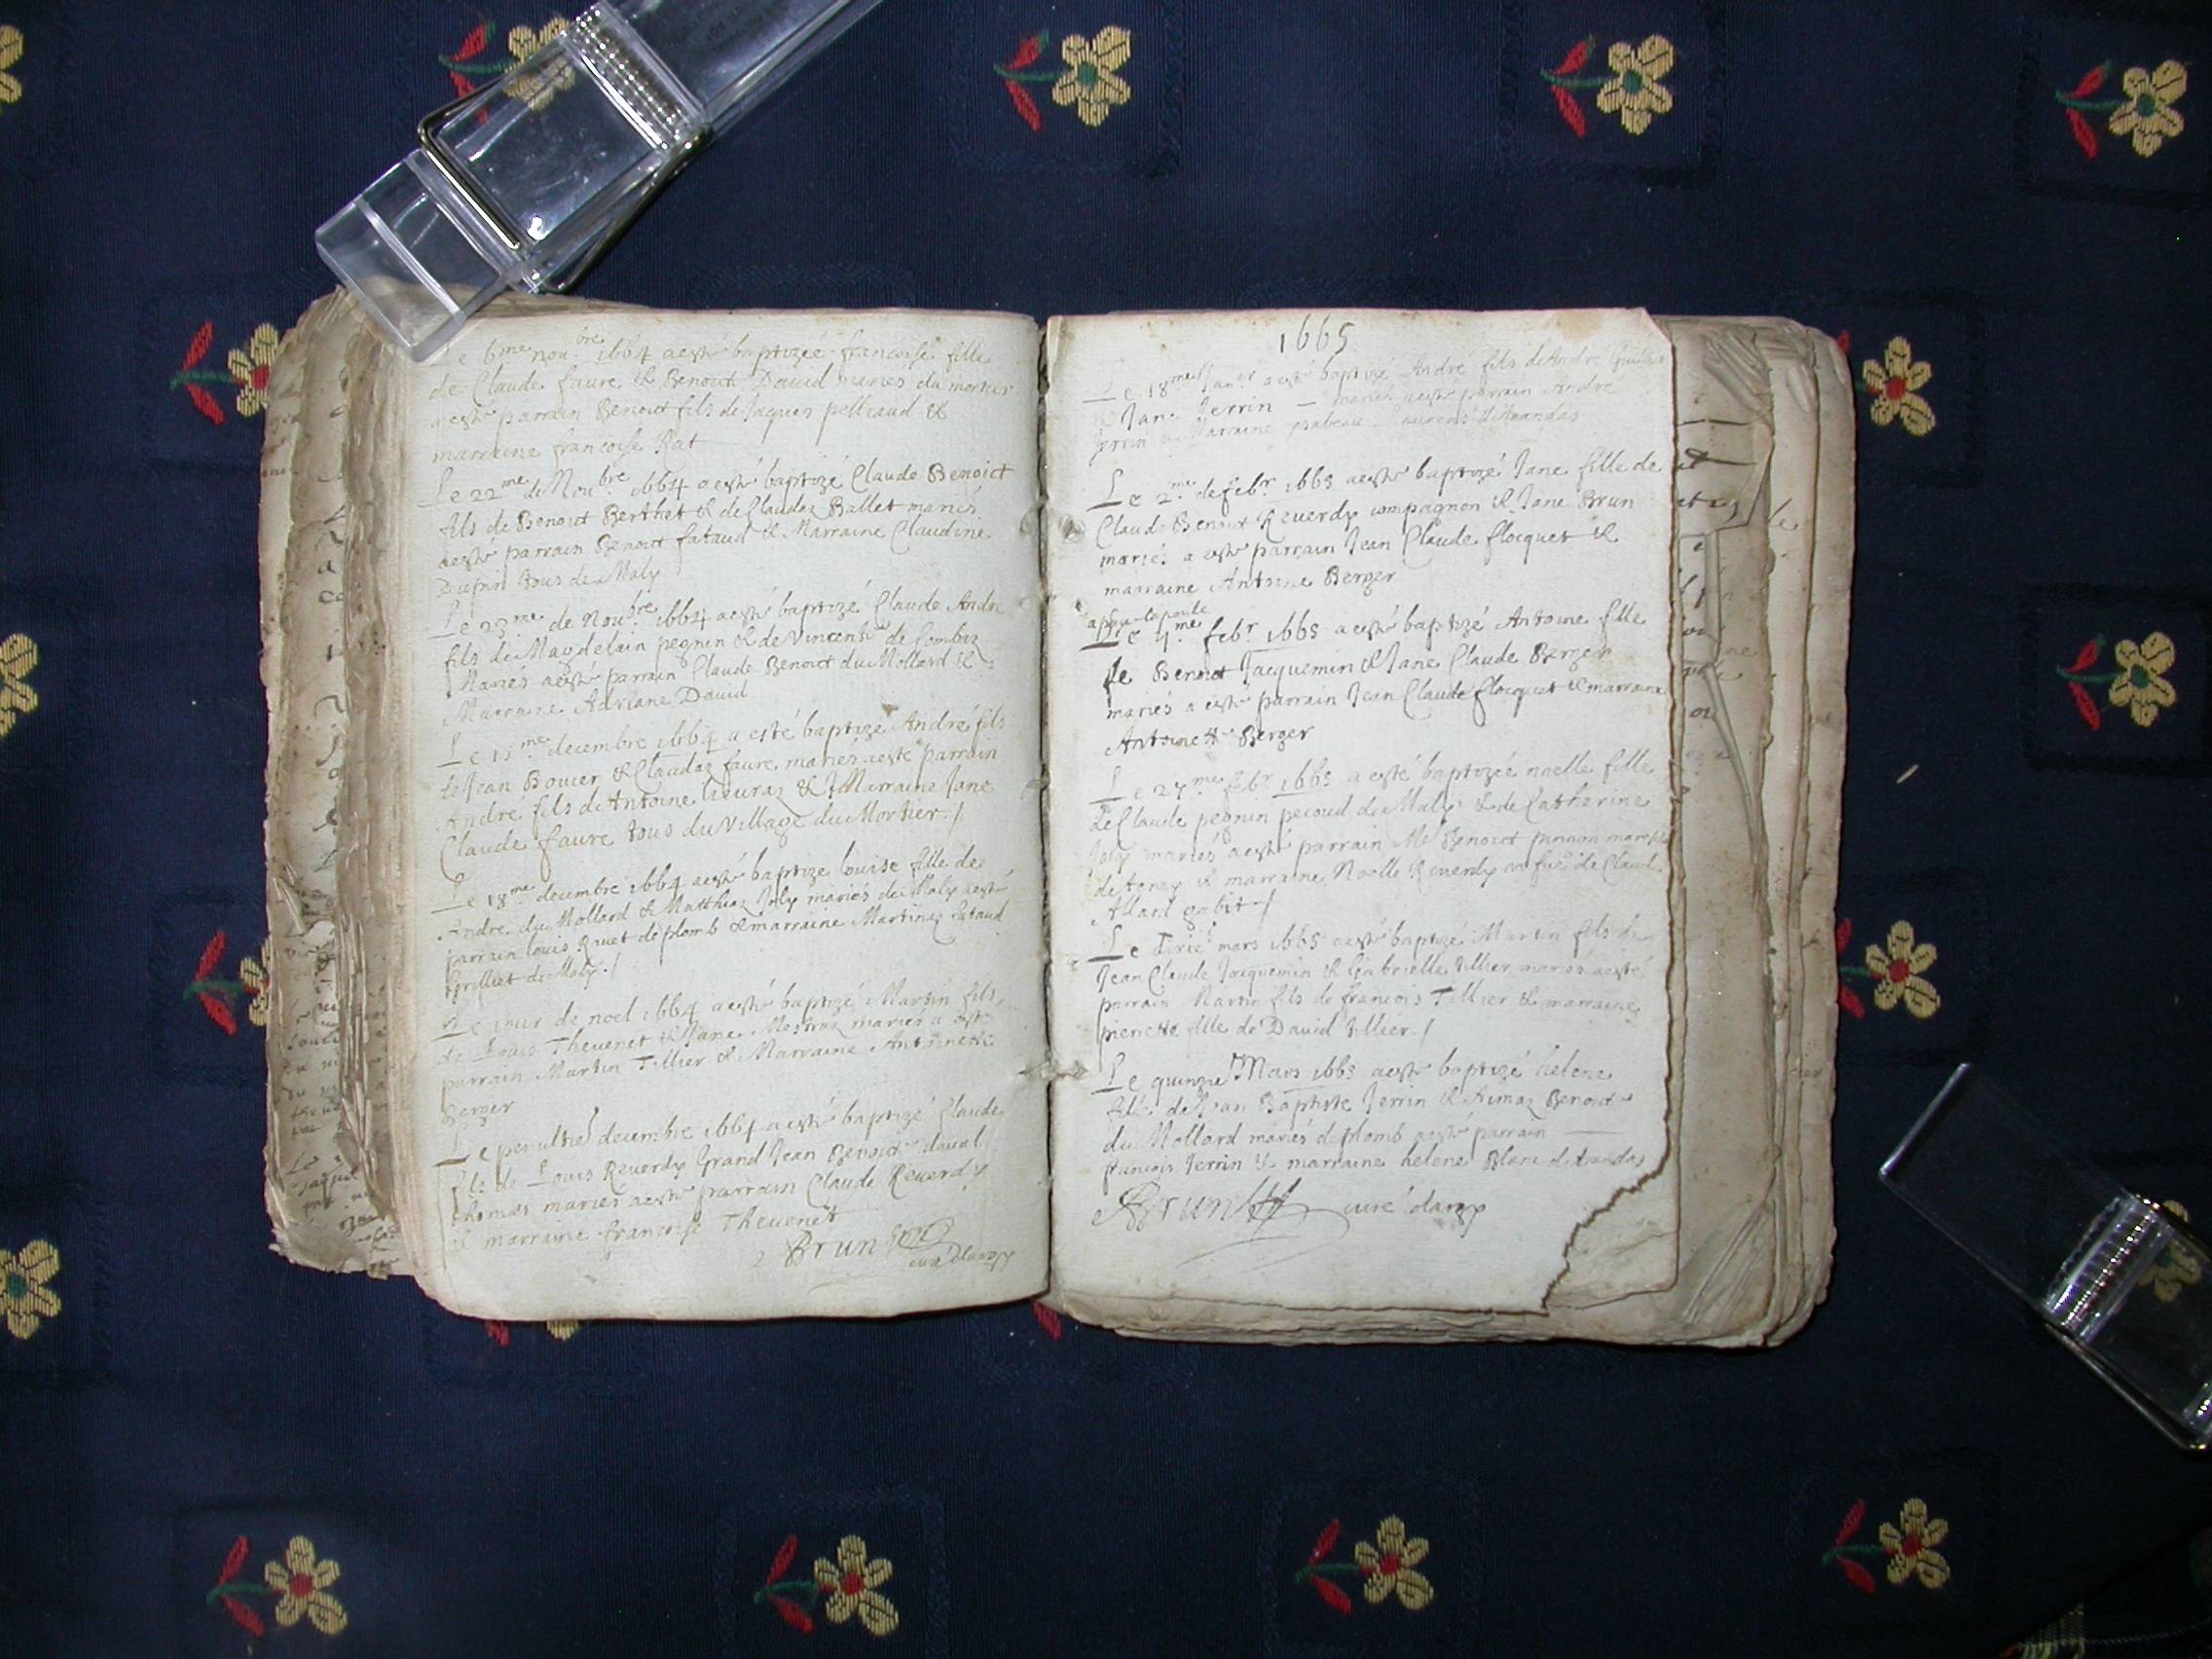 Le 6me nou.bre 1664 a esté baptizée francoise fille
de Claude faure & Benoite Dauid mariés du mortier
a esté parrain Benoict fils de Jaques pelliaud &
marraine francoise Rat
Le 22me de Nou.bre 1664 a esté baptizé Claude Benoict
fils de Benoict Berthet & de Claudaz Ballet mariés
a esté parrain Benoict fataud & Marraine Claudine
Dupin tous de Maly
Le 23me de Nou.bre 1664 a esté baptizé Claude Andre
fils de Magdelain pegnin & de Vincente de Combaz
Mariés a esté parrain Claude Benoict du Mollard &
Marraine Adriane Dauid
Le 15me decembre 1664 a esté baptizé André fils
de Jean Bouier & Claudaz faure mariés a esté parrain
André fils de Antoine lieuraz & Marraine Jane
Claude faure tous du Village du Mortier./
Le 18me decembre 1664 a esté baptizé louise fille de
Andre du Mollard & Matthiaz Joly mariés de Maly a esté
parrain louis Rauet de plomb & marraine Martinaz fataud
Grilliet de Maly./
Le jour de noel 1664 a esté baptizé Martin fils
de Louis Theuenet & Jane Mestraz mariés a esté
parrain Martin Tillier & Marraine Antoinette
Berger
Le penultie decembre 1664 a esté baptizé Claude
fils de Louis Reuerdy Grand Jean Benoict daual
thomas mariés a esté parrain Claude Reuerdy
& marraine francoise Theuenet
Brun
curé darzy
1665
Le 18me Janer a esté baptizé André fils de André
& Jane Jerrin — mariés a esté parrain André
Jerrin & Marraine ysabeau Laurens
Le 2me de febr 1665 a esté baptizé Jane fille de
Claude Benoict Reuerdy compagnon & Jane Brun
mariés a esté parrain Jean Claude flocquet &
marraine Antoine Berger
Le 4me febr 1665 a esté baptizé Antoine fille
de Benoict Jacquemin & Jane Claude Berger
mariés a esté parrain Jean Claude flocquet & marraine
Antoinette Berger
Le 27me febr 1665 a esté baptizée noelle fille
de Claude pegnin pecoud de Maly & de Catherine
Joly mariés a esté parrain Me Benoict
& marraine Noelle Reuerdy de Claude
Allard gabit /
Le mars 1665 a esté baptizé Martin fils de
Jean Claude Jacquemin & Gabrielle tillier mariés a esté
parrain Martin fils de francois Tillier & marraine
pierrette fille de Dauid tillier./
Le quinzie Mars 1665 a esté baptizé helene
fille de Jean Baptiste Jerrin & Aimaz Benoict
du Mollard mariés de plomb a esté parrain —
francois Jerrin & marraine helene Blanc
Brun curé darzy